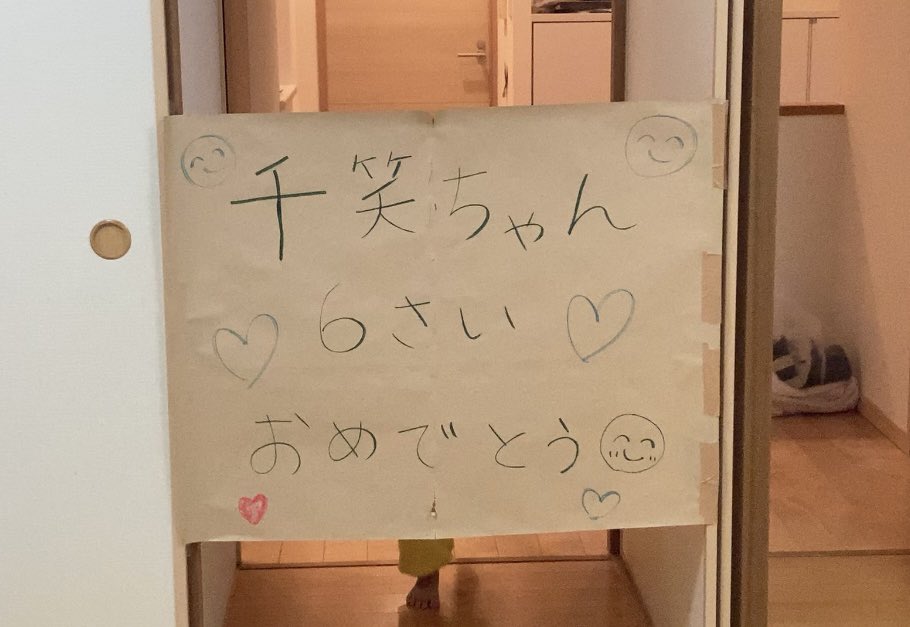 千笑ちゃん
6さい
おめでとう